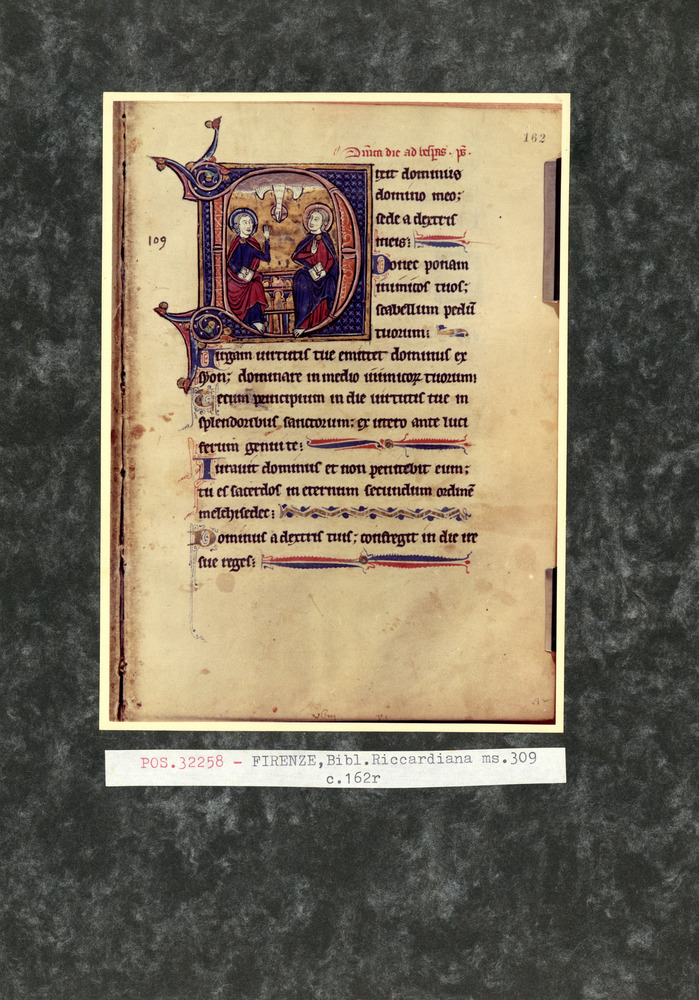 162
Dñica die ad vesp̃as . ps̃ .
109
Dixit dominus
domino meo;
sede a dextris
meis;
Donec ponam
inimicos tuos;
scabellum pedū
tuorum;
Uirgam uirtutis tue emittet dominus ex
syon; dominare in medio inimicoꝝ tuorum;
Tecum principium in die uirtutis tue in
splendoribus sanctorum; ex utero ante luci
ferum genui te;
Iurauit dominus et non penitebit eum;
tu es sacerdos in eternum secundum ordinē
melchisedec;
Dominus a dextris tuis; confregit in die ire
sue reges;
POS.32258 - FIRENZE,Bibl.Riccardiana ms.309
c.162r